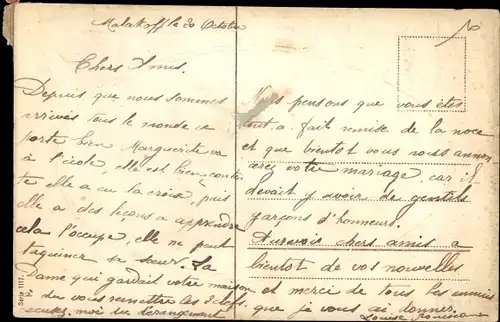 Malakoff le 20 Octobre
Chers Amis.
Depuis que nous sommes
arrivés tous le monde ce
porte bien Marguerite va
à l'école, elle est bien conten
te elle a eu la croix, puis
elle a des leçons a apprendre
cela l'occupe, elle ne peut
taquiner sa sœur. La
Dame qui gardait votre maison
a du vous remettre les 2 clefs.
excusez moi du dérangement
Nous pensons que vous êtes
tout a fait remise de la noce
et que bientot vous nous annon
cerez votre mariage, car il
devait y avoir de gentils
garçons d'honneurs.
Aurevoir chers amis a
bientot de vos nouvelles
et merci de tous les ennuies
que je vous ai donner.
Louise
Serie 1111